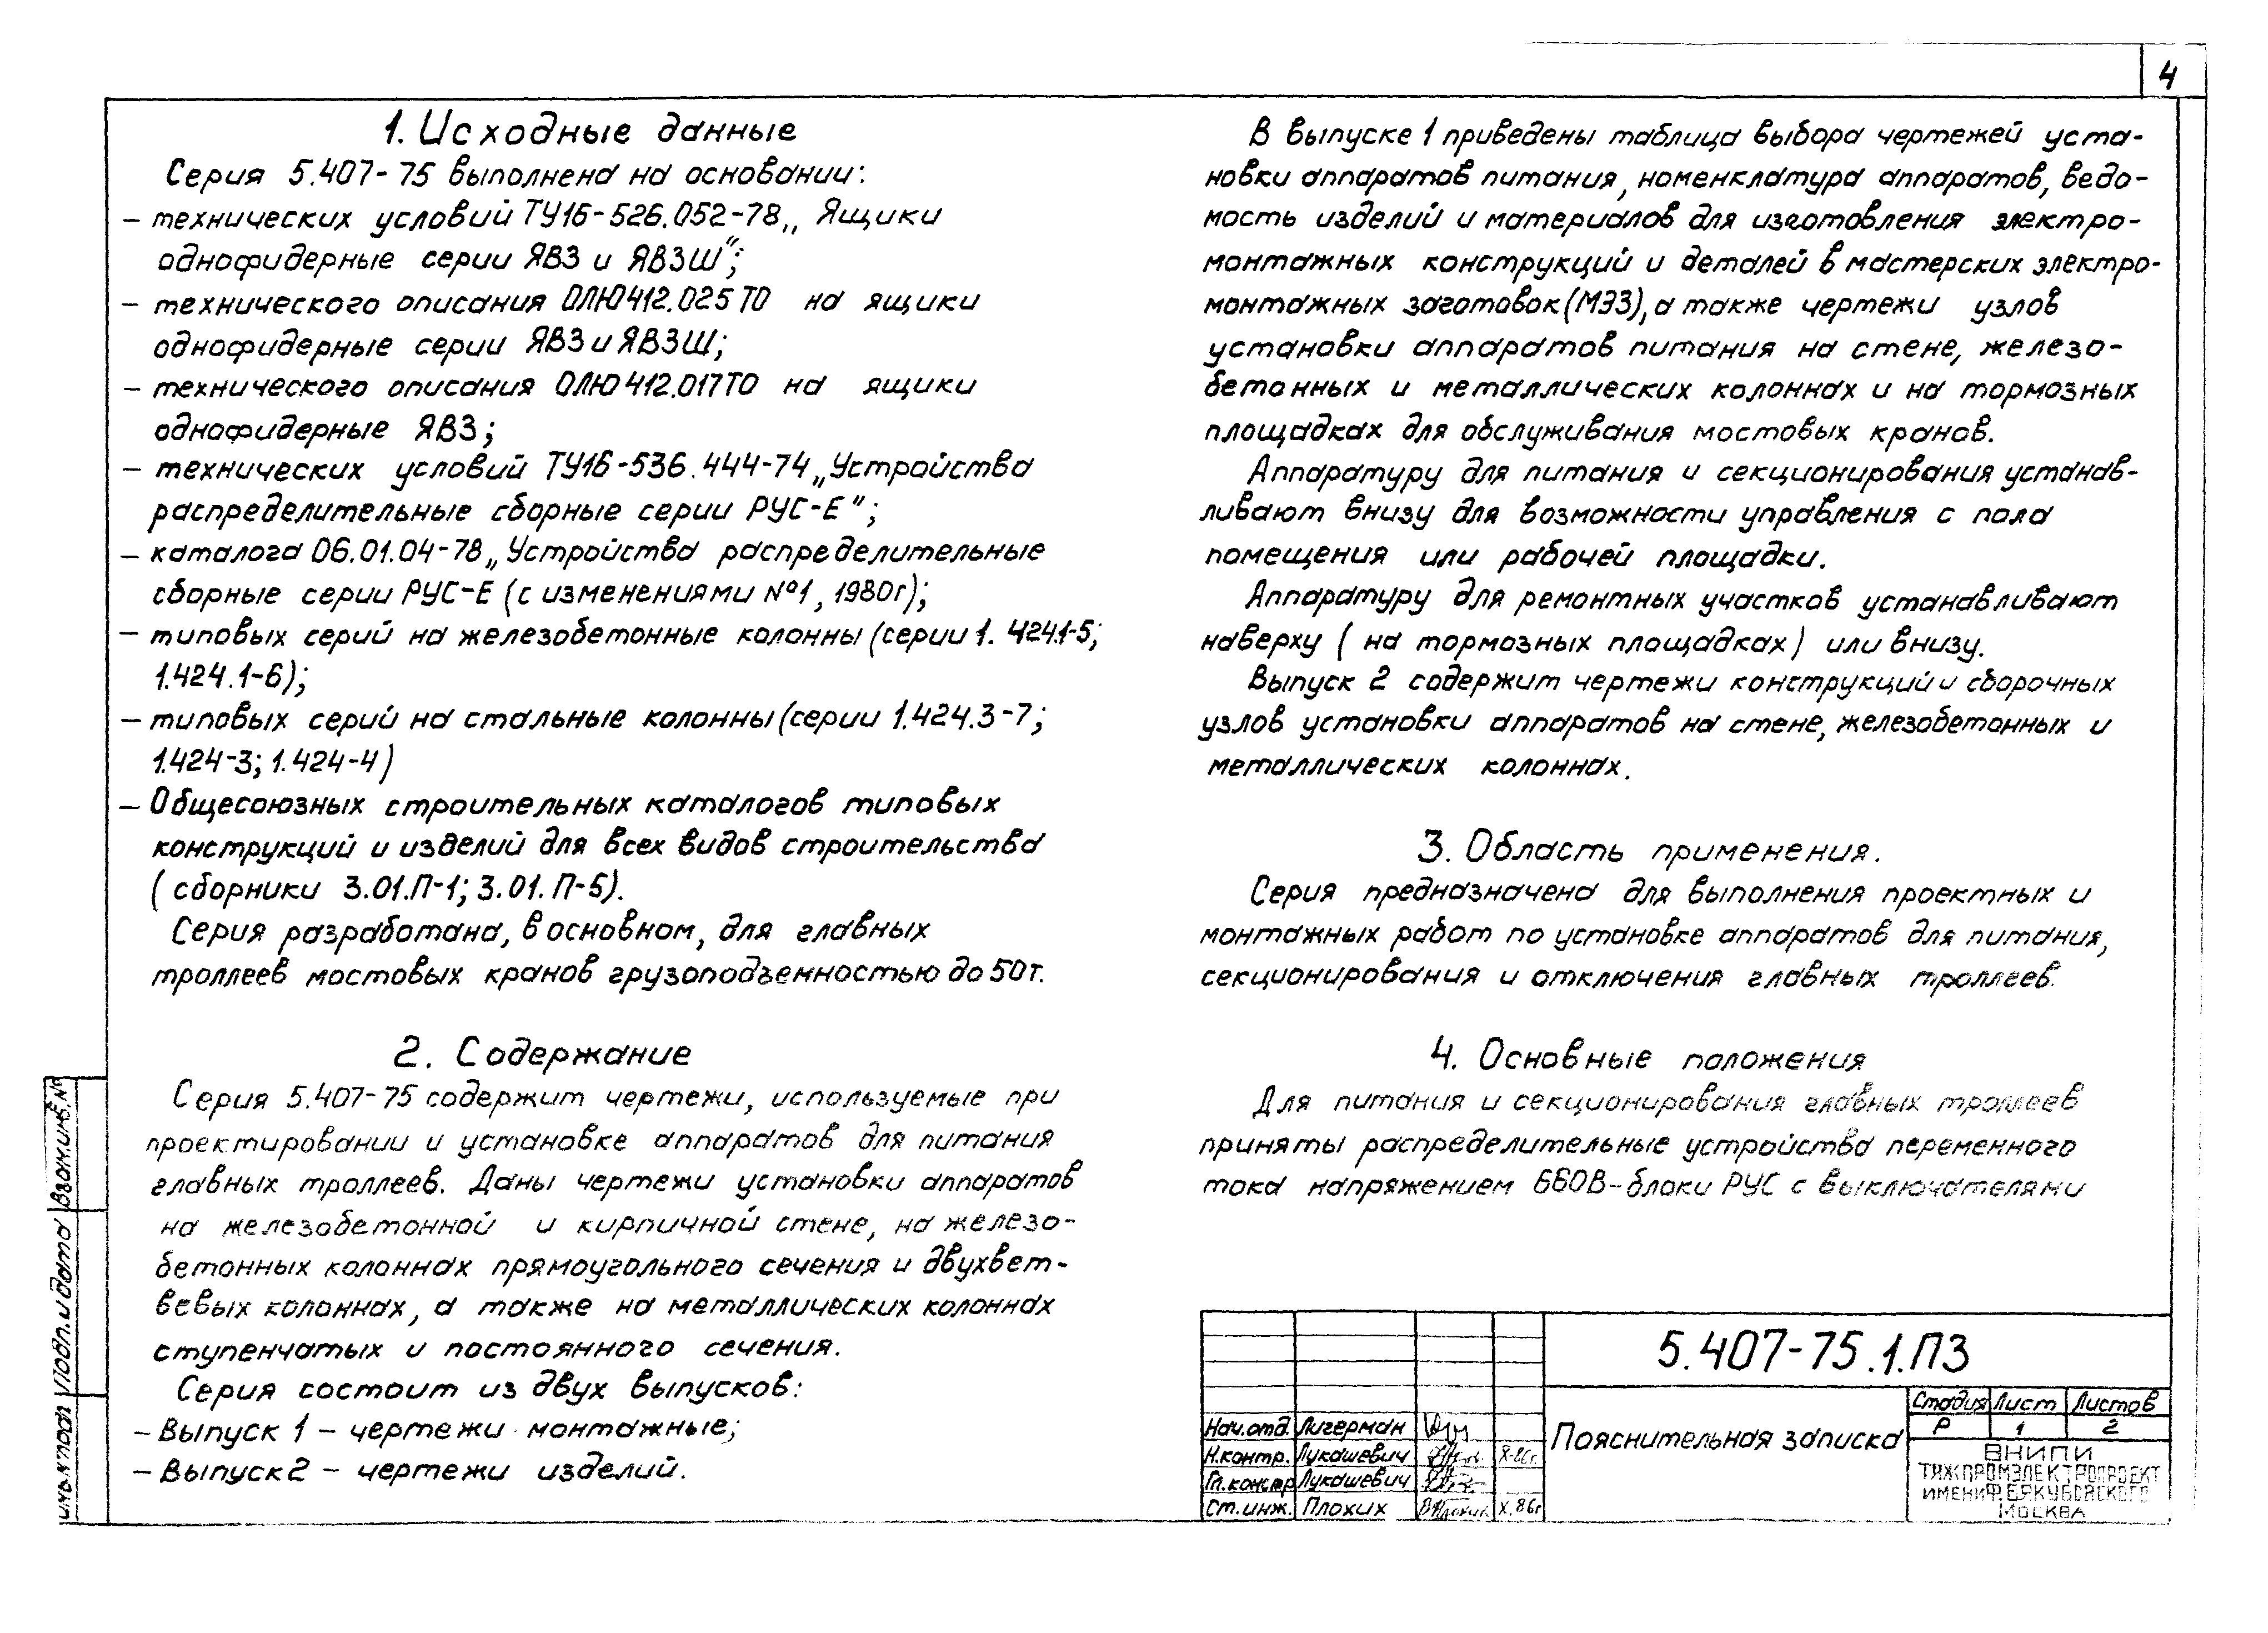 4
1. Исходные данные
Серия 5.407-75 выполнена на основании:
– технических условий ТУ16-526.052-78 „Ящики
однофидерные серии ЯВЗ и ЯВЗШ";
– технического описания ОЛЮ412.025 ТО на ящики
однофидерные серии ЯВЗ и ЯВЗШ;
– технического описания ОЛЮ412.017ТО на ящики
однофидерные ЯВЗ;
– технических условий ТУ16-536.444-74 „Устройства
распределительные сборные серии РУС-Е";
– каталога 06.01.04-78 „Устройства распределительные
сборные серии РУС-Е (с изменениями №1, 1980г);
– типовых серий на железобетонные колонны (серии 1.424.1-5;
1.424.1-6);
– типовых серий на стальные колонны (серии 1.424.3-7;
1.424-3; 1.424-4)
– Общесоюзных строительных каталогов типовых
конструкций и изделий для всех видов строительства
(сборники 3.01.П-1; 3.01.П-5).
Серия разработана, в основном, для главных
троллеев мостовых кранов грузоподъемностью до 50т.
2. Содержание
Серия 5.407-75 содержит чертежи, используемые при
проектировании и установке аппаратов для питания
главных троллеев. Даны чертежи установки аппаратов
на железобетонной и кирпичной стене, на железо-
бетонных колоннах прямоугольного сечения и двухвет-
вевых колоннах, а также на металлических колоннах
ступенчатых и постоянного сечения.
Серия состоит из двух выпусков:
– Выпуск 1 – чертежи монтажные;
– Выпуск 2 – чертежи изделий.
В выпуске 1 приведены таблица выбора чертежей уста-
новки аппаратов питания, номенклатура аппаратов, ведо-
мость изделий и материалов для изготовления электро-
монтажных конструкций и деталей в мастерских электро-
монтажных заготовок (МЭЗ), а также чертежи узлов
установки аппаратов питания на стене, железо-
бетонных и металлических колоннах и на тормозных
площадках для обслуживания мостовых кранов.
Аппаратуру для питания и секционирования устанав-
ливают внизу для возможности управления с пола
помещения или рабочей площадки.
Аппаратуру для ремонтных участков устанавливают
наверху (на тормозных площадках) или внизу.
Выпуск 2 содержит чертежи конструкций и сборочных
узлов установки аппаратов на стене, железобетонных и
металлических колоннах.
3. Область применения.
Серия предназначена для выполнения проектных и
монтажных работ по установке аппаратов для питания,
секционирования и отключения главных троллеев.
4. Основные положения
Для питания и секционирования главных троллеев
приняты распределительные устройства переменного
тока напряжением 660В – блоки РУС с выключателями
5.407-75.1.ПЗ
Пояснительная записка
Стадия Лист Листов
Р 1 2
ВНИПИ
ТЯЖПРОМЭЛЕКТРОПРОЕКТ
ИМЕНИ Ф.Б.ЯКУБОВСКОГО
МОСКВА
Нач.отд. Лигерман
Н.контр. Лукашевич X-86г.
Гл.констр Лукашевич
Ст.инж. Плохих X.86г
Инв.№подл Подп. и дата Взам.инв.№